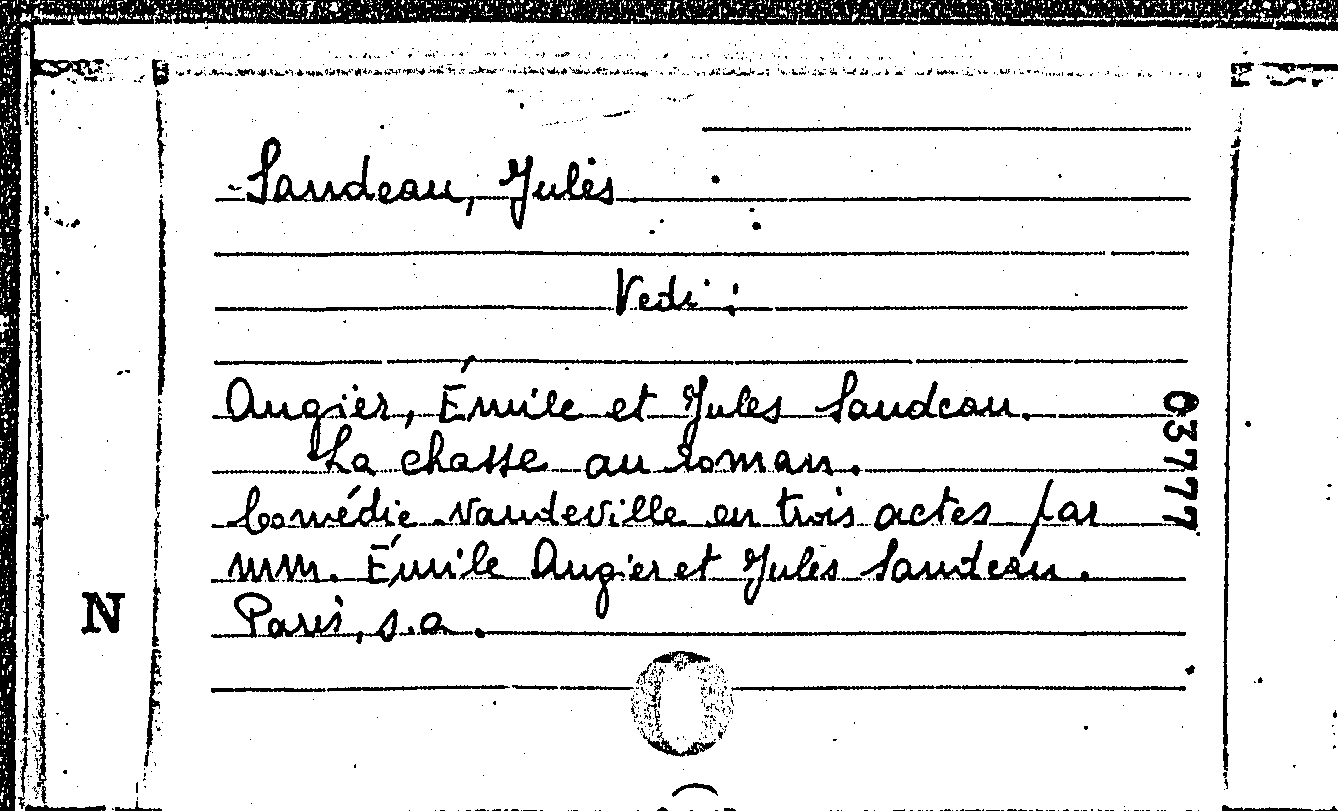 Sandeau, Jules
Vedi:
Augier, Émile et Jules Sandeau.
La chasse au roman.
Comédie vaudeville en trois actes par
MM. Émile Augier et Jules Sandeau.
Paris, s.a.
N
03777